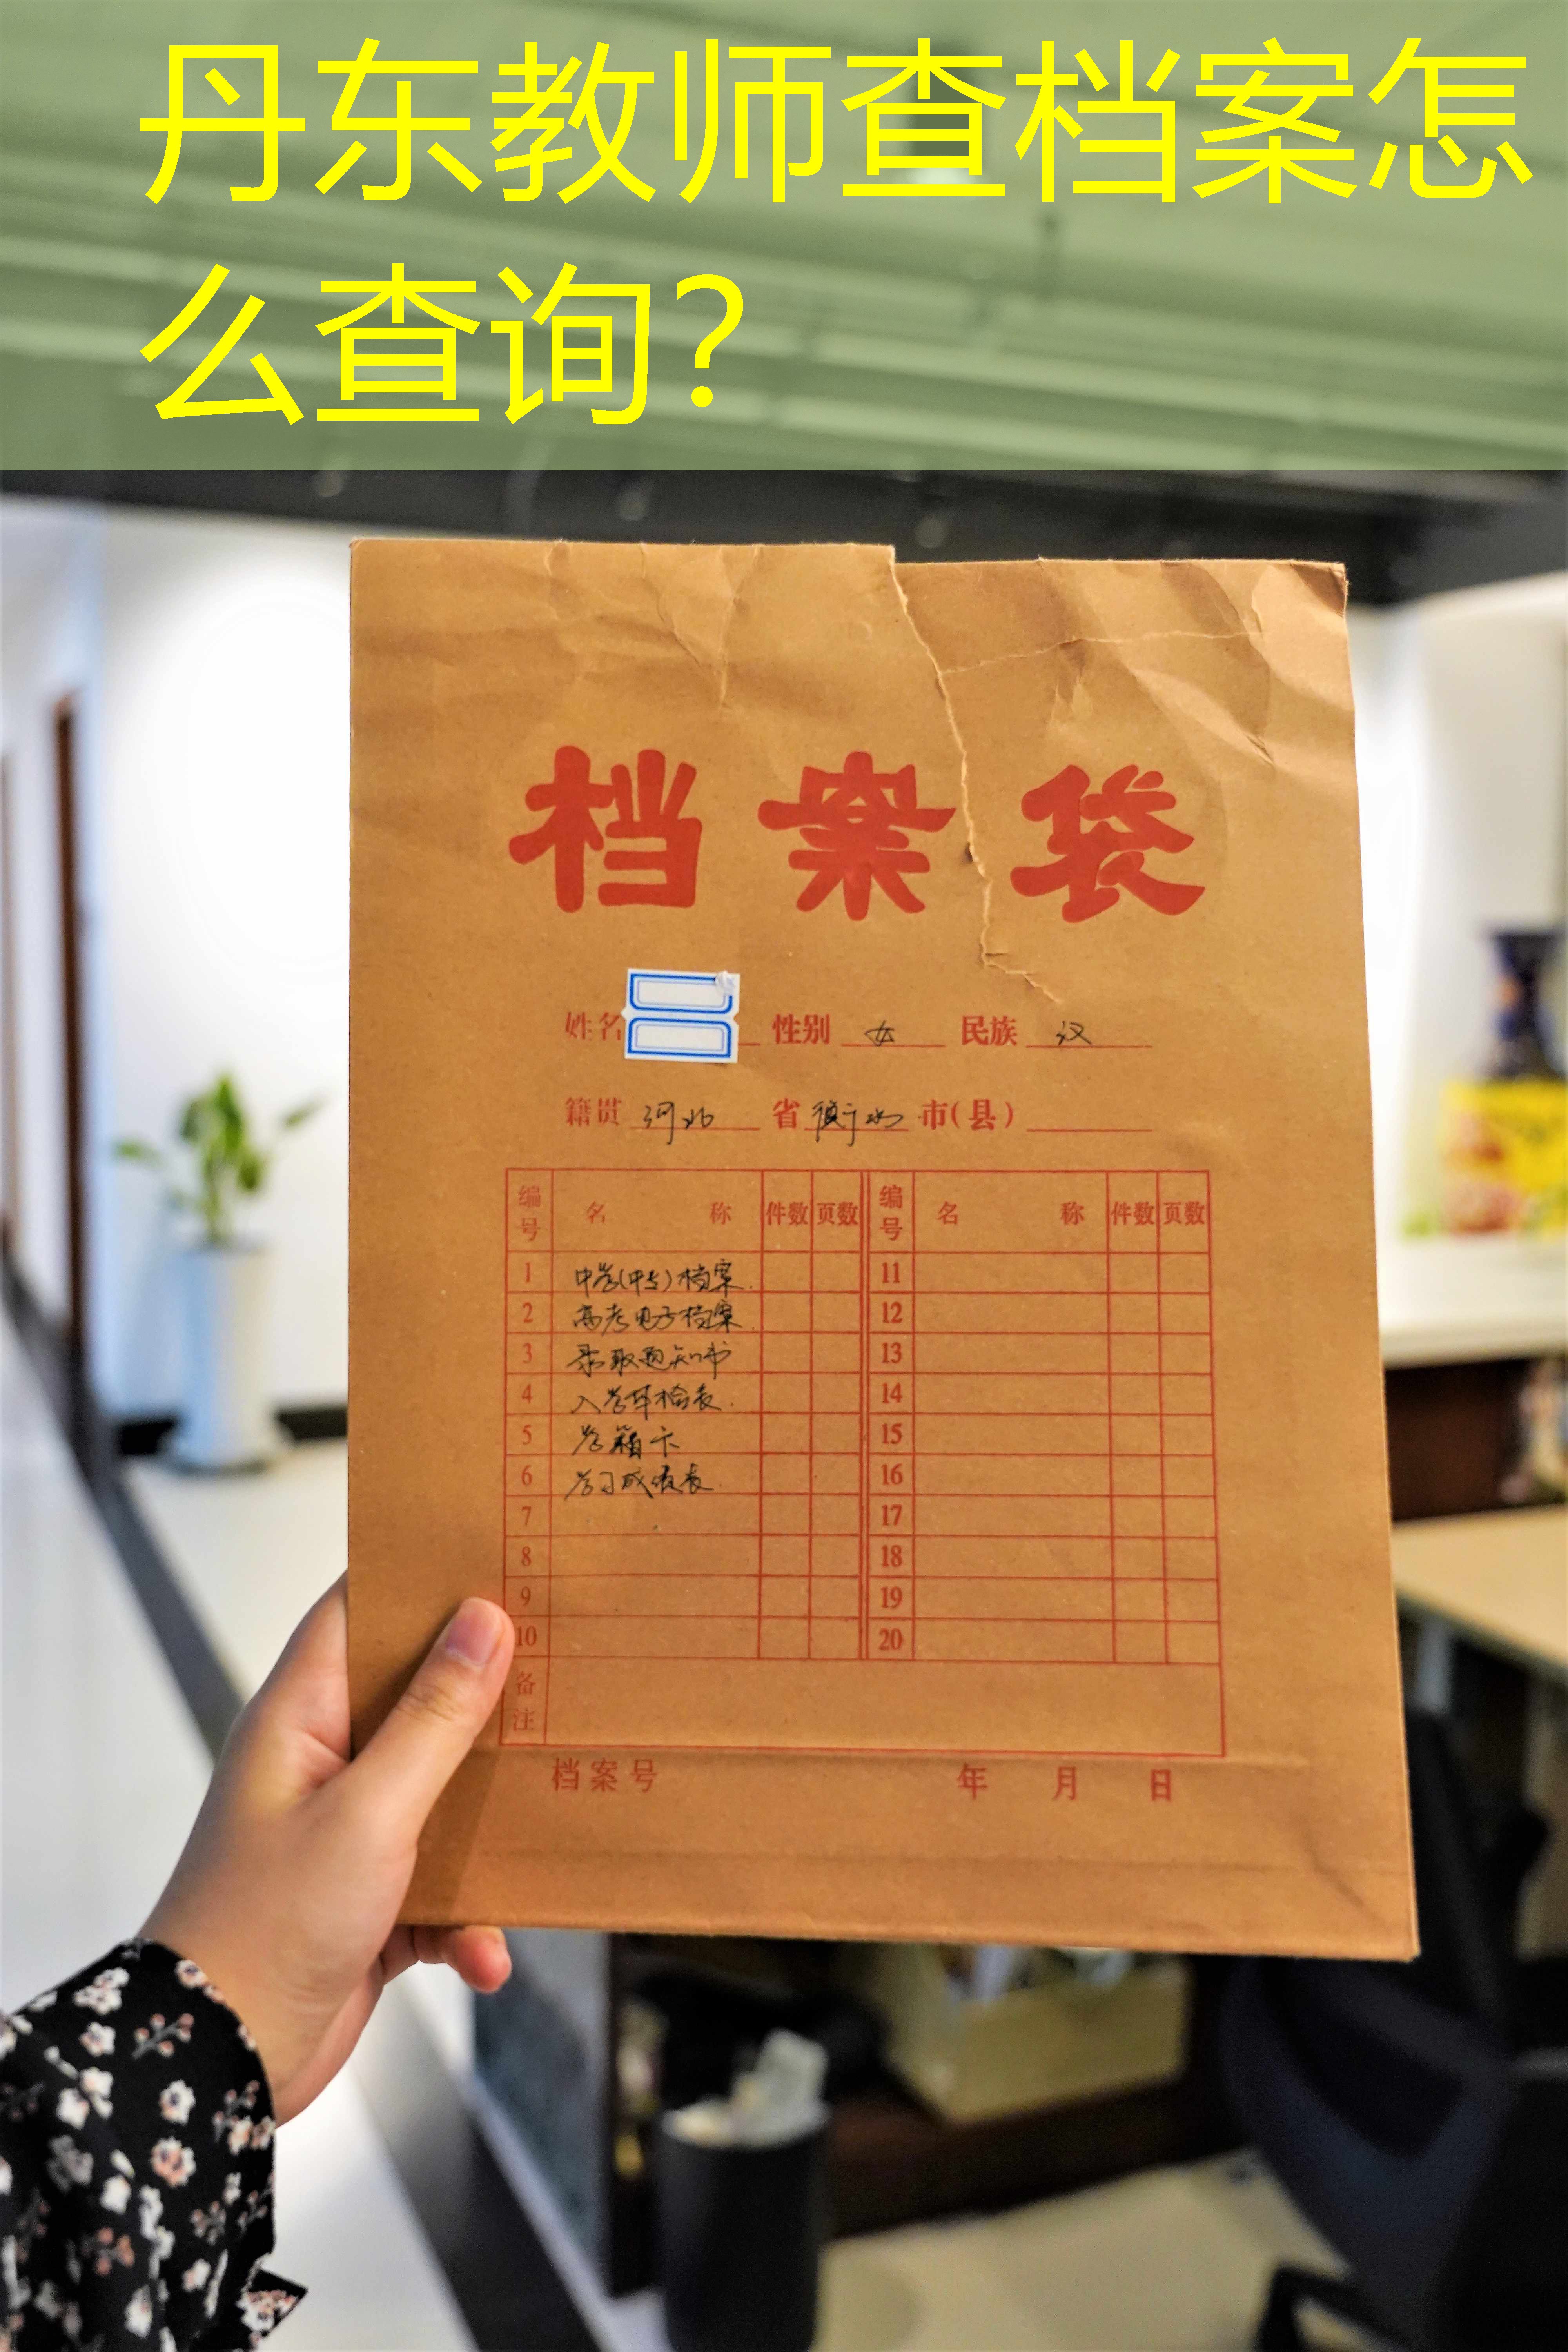 丹东教师查档案怎
么查询？
档案袋
姓名 性别 女 民族 汉
籍贯 河北 省 衡水 市(县)
编号 名称 件数 页数 编号 名称 件数 页数
1 中学(中专)档案. 11
2 高考电子档案. 12
3 录取通知书 13
4 入学体检表. 14
5 学籍卡 15
6 学习成绩表. 16
7 17
8 18
9 19
10 20
备注
档案号 年 月 日